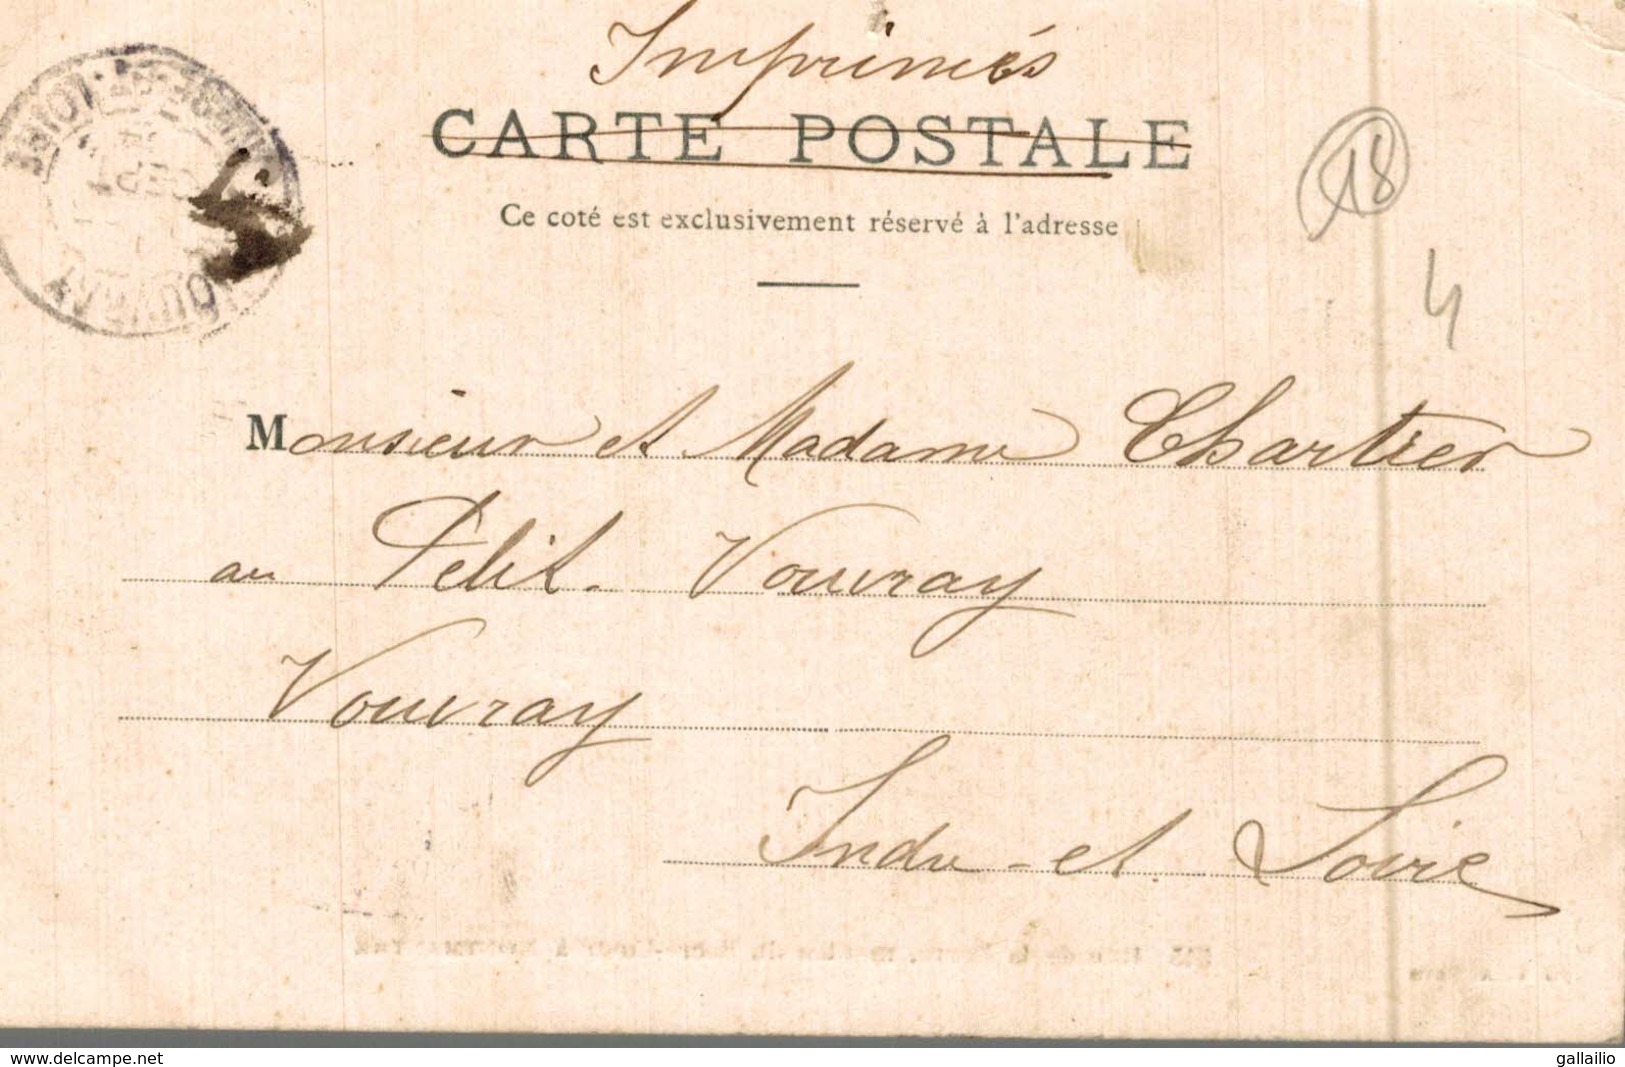 Imprimés
CARTE POSTALE
Ce coté est exclusivement réservé à l'adresse
18
4
Monsieur et Madame Chartier
au Petit-Vouvray
Vouvray
Indre-et-Loire
www.delcampe.net
gallailio